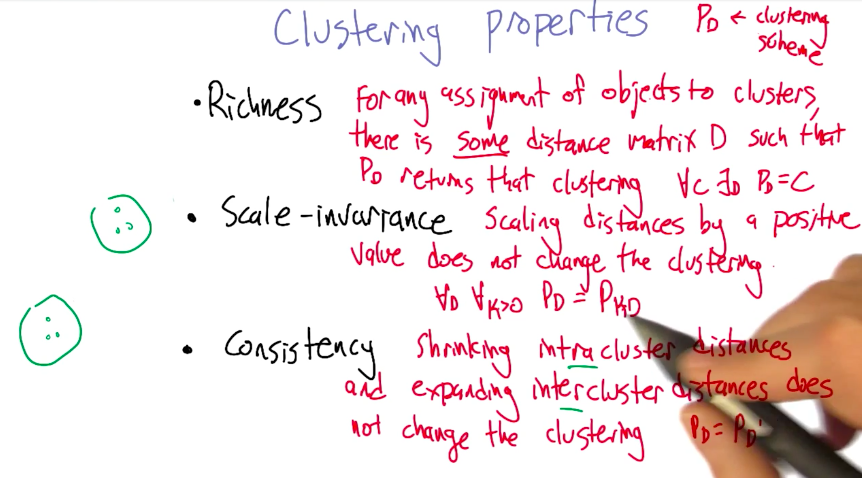 Clustering properties
P_D ← clustering
scheme
• Richness For any assignment of objects to clusters,
there is some distance matrix D such that
P_D returns that clustering ∀c ∃_D P_D = C
• Scale-invariance Scaling distances by a positive
value does not change the clustering
∀_D ∀_K>0 P_D = P_KD
• Consistency Shrinking intracluster distances
and expanding intercluster distances does
not change the clustering P_D = P_D'